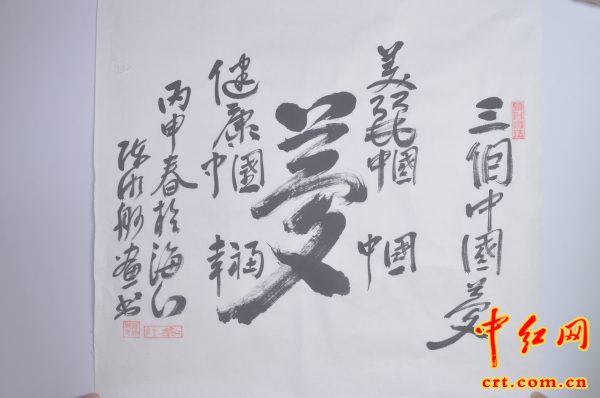 三個中國夢
美麗中國
健康中國
夢
幸福 中國
丙申春於海口
中红网
crt.com.cn